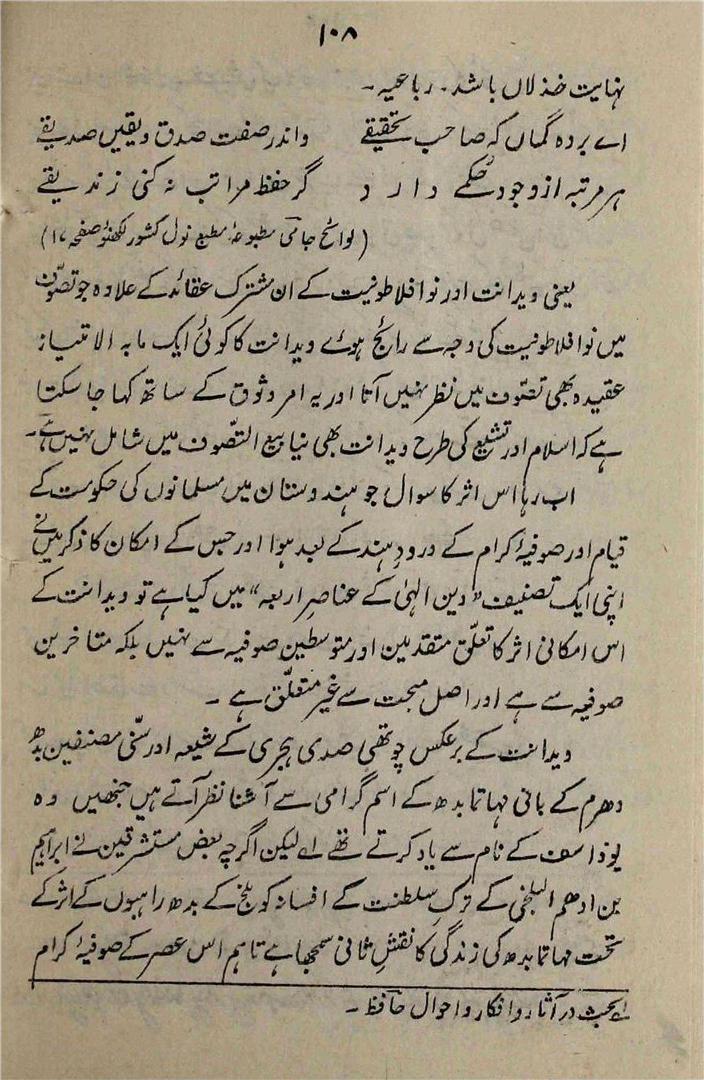 ۱۰۸
نہایت خذلاں باشد۔ رباعیہ۔
اے بردہ گماں کہ صاحب تحقیقے واندر صفت صدق و یقیں صدیقے
ہر مرتبہ از وجود حکمے دارد گر حفظ مراتب نہ کنی زندیقے
(لوائح جامی مطبوعۂ مطبع نول کشور لکھنؤ صفحہ ۱۷)
یعنی ویدانت اور نوافلاطونیت کے ان مشترک عقائد کے علاوہ جو تصوّف
میں نوافلاطونیت کی وجہ سے رائج ہوئے ویدانت کا کوئی ایک مابہ الامتیاز
عقیدہ بھی تصّوف میں نظر نہیں آتا اور یہ امر وثوق کے ساتھ کہا جا سکتا
ہے کہ اسلام اور تشیع کی طرح ویدانت بھی ینابیع التّصوف میں شامل نہیں ہے۔
اب رہا اس اثر کا سوال جو ہندوستان میں مسلمانوں کی حکومت کے
قیام اور صوفیۂ کرام کے درودِ ہند کے بعد ہوا اور جس کے امکان کا ذکر میں نے
اپنی ایک تصنیف "دین الہٰی کے عناصرِ اربعہ" میں کیا ہے تو ویدانت کے
اس امکانی اثر کا تعلّق متقدمین اور متوسطین صوفیہ سے نہیں بلکہ متاخرین
صوفیہ سے ہے اور اصل مبحت سے غیر متعلّق ہے۔
ویدانت کے برعکس چوتھی صدی ہجری کے شیعہ اور سنّی مصنفین بدھ
دھرم کے بانی مہاتما بدھ کے اسم گرامی سے آشنا نظر آتے ہیں جنھیں وہ
یوذاسف کے نام سے یاد کرتے تھے لے لیکن اگرچہ بعض مستشرقین نے ابراہیم
بن ادھم البلخی کے ترکِ سلطنت کے افسانہ کو بلخ کے بدھ راہبوں کے اثر کے
تحت مہاتما بدھ کی زندگی کا نقشِ ثانی سمجھا ہے تاہم اس عصر کے صوفیۂ کرام
لے بحث در آثار و افکار و احوال حافظ۔